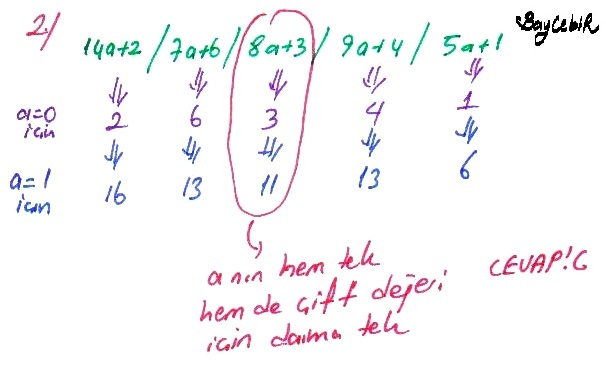 2/
BayCebiR
14a+2 / 7a+6 / 8a+3 / 9a+4 / 5a+1
a=0 için 2 6 3 4 1
a=1 için 16 13 11 13 6
a nın hem tek
hem de çift değeri
için daima tek
CEVAP!C